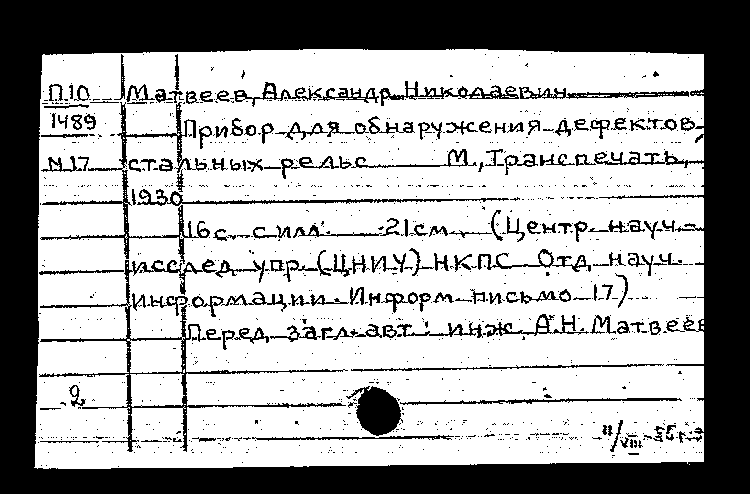 П10 Матвеев, Александр Николаевич
1489 Прибор для обнаружения дефектов
N17 стальных рельс М., Транспечать,
1930
16с. с илл. 21см. (Центр. науч.-
исслед. упр. (ЦНИУ) НКПС. Отд. науч.
информации. Информ. письмо 17)
Перед загл. авт.: инж. А.Н. Матвеев
2